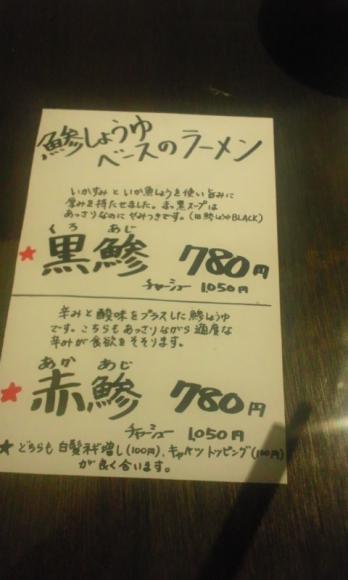 鯵しょうゆ
ベースのラーメン
いかすみといか魚しょうを使い旨みに
厚みを持たせました。まっ黒スープは
あっさりなのにやみつきです。(旧鯵しょうゆBLACK)
くろ あじ
★黒鯵 780円
チャーシュー 1,050円
辛みと酸味をプラスした鯵しょうゆ
です。こちらもあっさりながら適度な
辛みが食欲をそそります。
あか あじ
★赤鯵 780円
チャーシュー 1,050円
★どちらも白髪ネギ増し(100円)、キャベツトッピング(100円)
が良く合います。